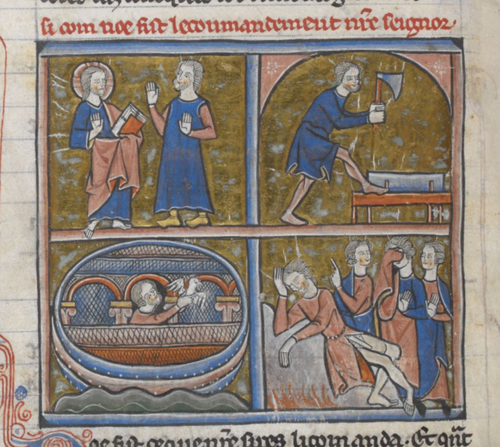 si com noe fist le coumandement nr̄e seignor.
oe fist ce que nr̄e sires li comanda. Et q̄nt